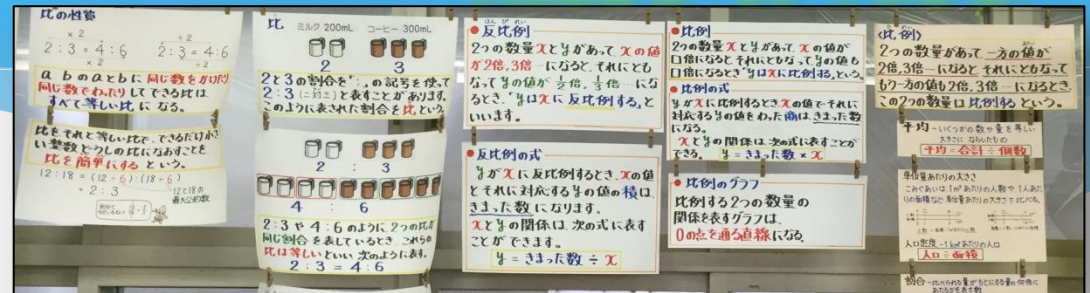 比の性質
×2
2:3=4:6
×2
÷2
2:3=4:6
÷2
a:bのaとbに同じ数をかけたり
同じ数でわったりしてできる比は
すべて等しい比になる。
比をそれと等しい比で、できるだけ小さ
い整数どうしの比になおすことを
比を簡単にするという。
12:18=(12÷6):(18÷6)
=2:3
12と18の
最大公約数
比 ミルク 200mL コーヒー 300mL
2 3
2と3の割合を「:」の記号を使って
2:3(に対3)と表すことがあります。
このように表された割合を比という
2 : 3
4 : 6
2:3や4:6のように、2つの比が
同じ割合を表しているとき、これらの
比は等しいといい、次のように表す。
2:3=4:6
はんぴれい
●反比例
2つの数量xとyがあって、xの値
が2倍、3倍…になると、それにとも
なってyの値が1/2倍、1/3倍…にな
るとき、「yはxに反比例する」と
いいます。
●反比例の式
yがxに反比例するとき、xの値
とそれに対応するyの値の積は、
きまった数になります。
xとyの関係は、次の式に表す
ことができます。
y=きまった数÷x
●比例
2つの数量xとyがあって、xの値が
□倍になるとそれにともなってyの値も
□倍になるとき「yはxに比例する」という。
●比例の式
yがxに比例するとき、xの値でそれに
対応するyの値をわった商は、きまった数
になる。
xとyの関係は、次の式に表すことが
できる。 y=きまった数×x
●比例のグラフ
比例する2つの数量の
関係を表すグラフは、
0の点を通る直線になる。
〈比例〉
2つの数量があって、一方の値が
2倍、3倍…になると、それにともなって
もう一方の値も2倍、3倍…になるとき、
この2つの数量は比例するという。
平均-いくつかの数や量を等しい
大きさにならしたもの
平均=合計÷個数
単位量あたりの大きさ
こみぐあいは1m²あたりの人数や、1人あた
りの面積など、単位量あたりの大きさで比べる。
人口密度-1km²あたりの人口
人口÷面積
割合-比べられる量がもとにする量の何倍に
あたるかを表す数